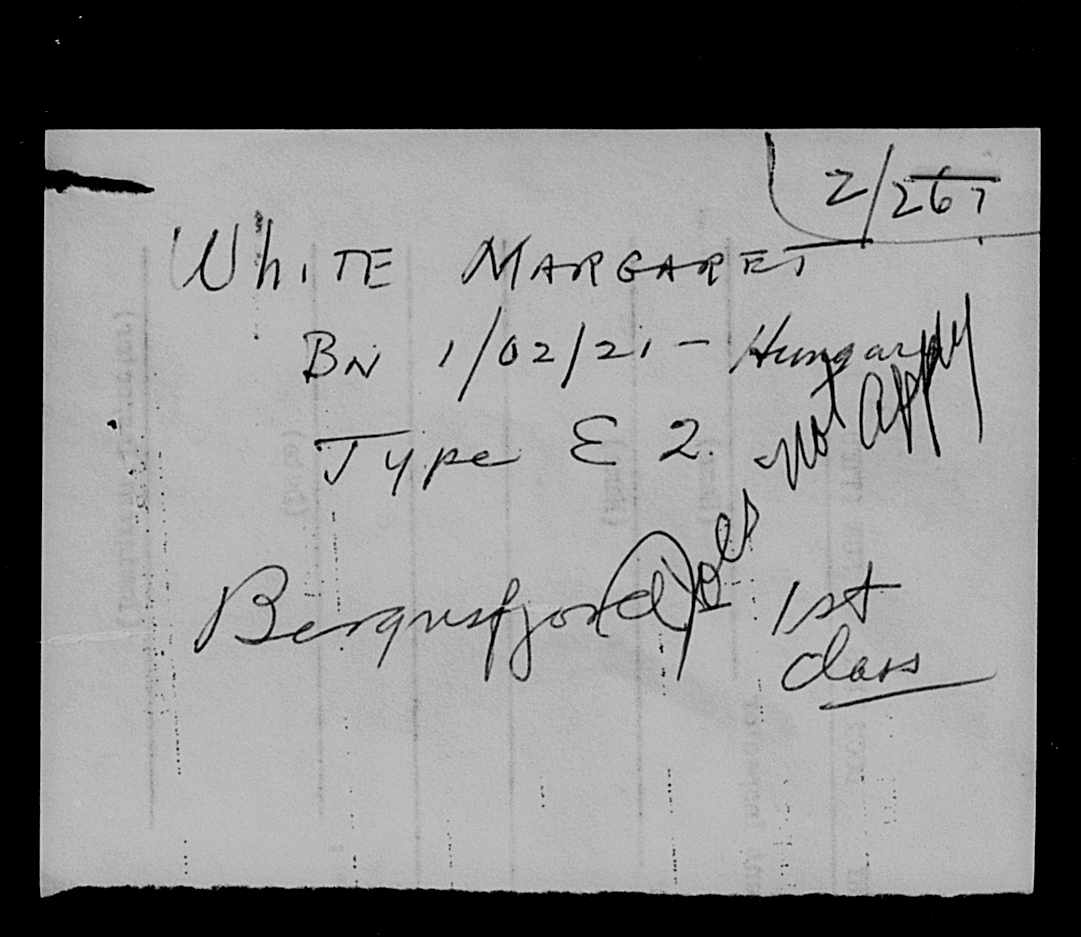 2/267
White MARGARET
BN 1/02/21 - Hungary
Type E 2.
does not apply
Bergensfjord 1st
class